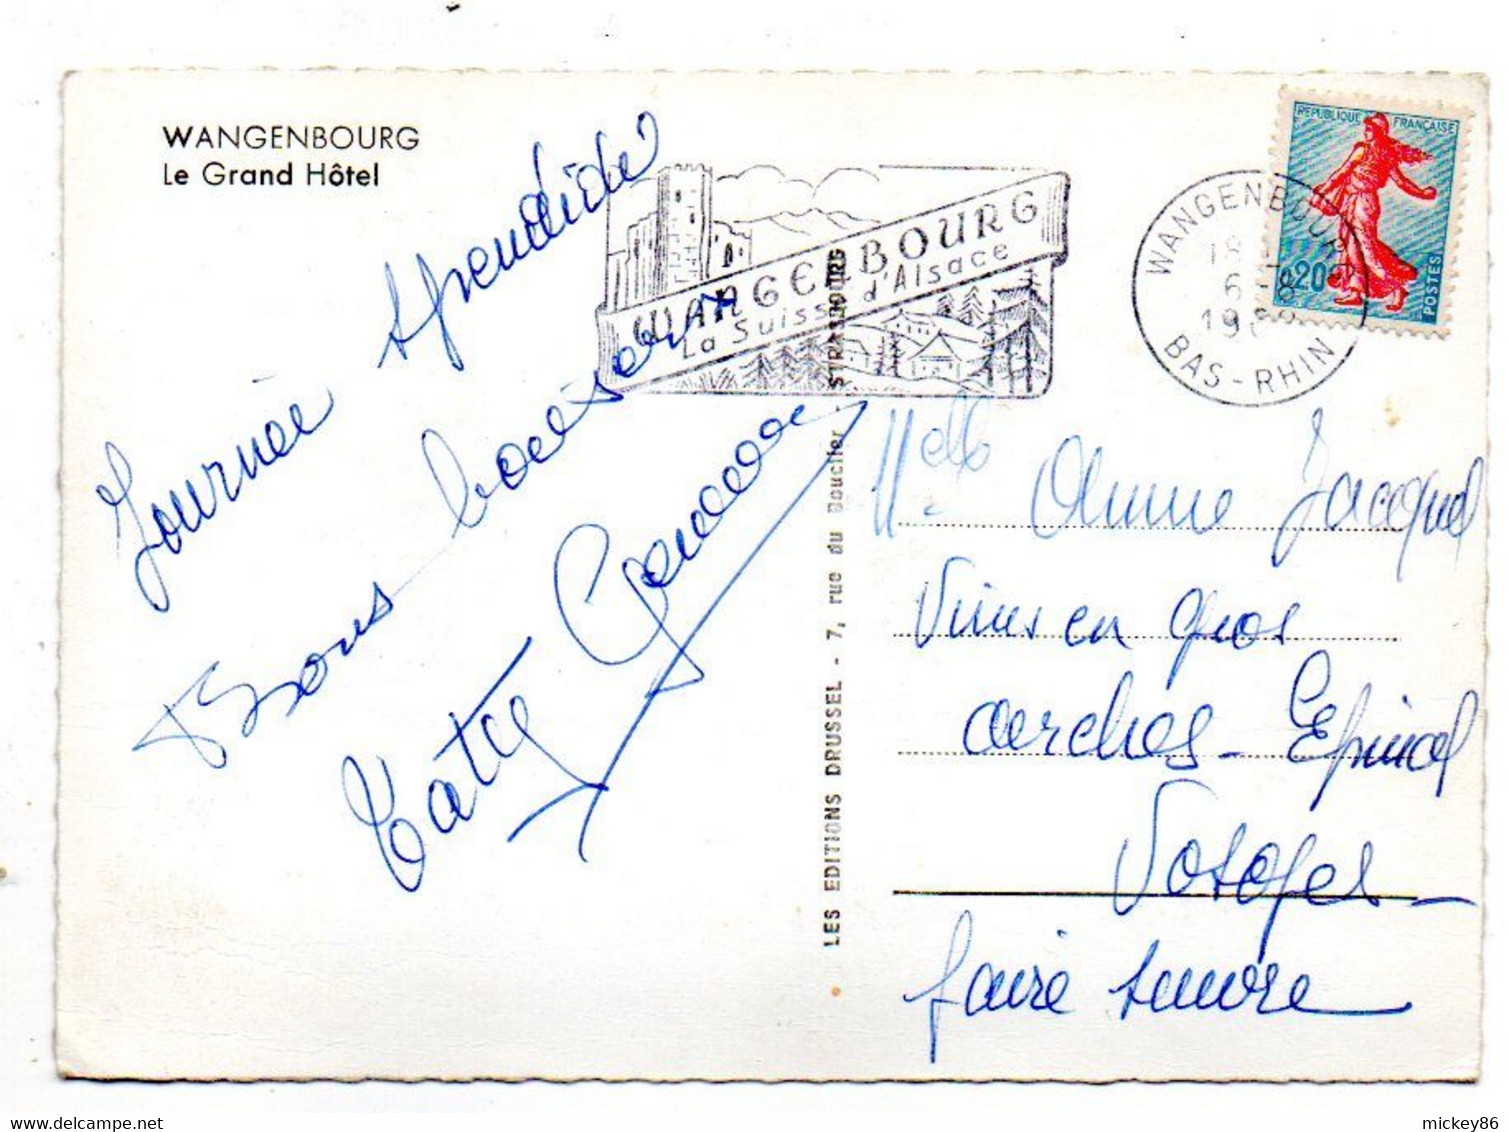 WANGENBOURG
Le Grand Hôtel
Journée splendide
Bons baisers
Taty
WANGENBOURG
La Suisse d'Alsace
REPUBLIQUE FRANÇAISE
0,20
POSTES
WANGENBOURG
18
6-8
BAS-RHIN
LES EDITIONS DRUSSEL - 7, rue du Bouclier - STRASBOURG
Melle Anne Jacquel
Vins en gros
Arches - Epinal
Vosges -
faire suivre
mickey86